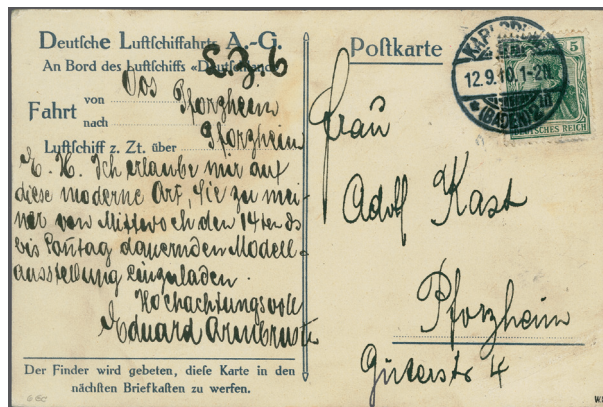 Deutsche Luftschiffahrts A.-G.
An Bord des Luftschiffs «Deutschland»
Oos
Fahrt
von Pforzheim
nach Pforzheim
Luftschiff z. Zt. über
E. H. Ich erlaube mir auf
diese moderne Art, Sie zu mei-
ner von Mittwoch den 14ten ds
bis Sonntag dauernden Modell-
ausstellung einzuladen.
Hochachtungsvoll
Eduard Armbruster
Der Finder wird gebeten, diese Karte in den
nächsten Briefkasten zu werfen.
Postkarte
12.9.10.1-2N.
(BADEN)
5
DEUTSCHES REICH
Frau
Adolf Kast
Pforzheim
Güterstr 4